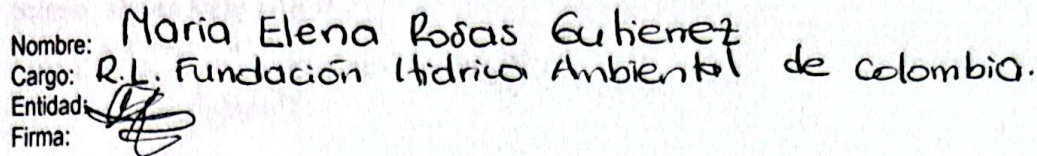 Nombre: Maria Elena Rosas Gutierrez
Cargo: R.L. Fundación Hídrica Ambiental de Colombia.
Entidad:
Firma: